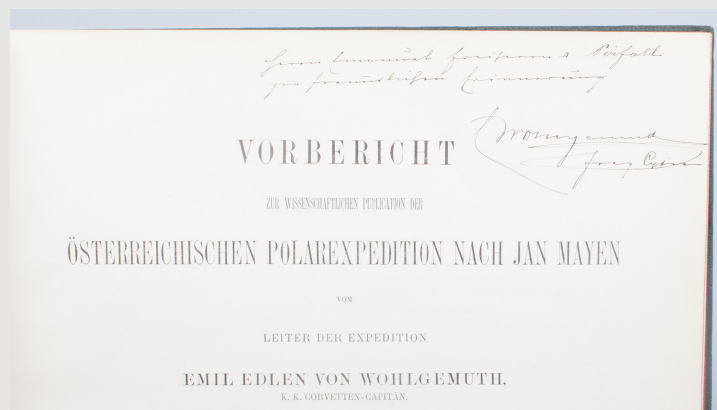 Herrn Emanuel Freiherrn v Perfall
zur freundlichen Erinnerung
Wohlgemuth
VORBERICHT
ZUR WISSENSCHAFTLICHEN PUBLICATION DER
ÖSTERREICHISCHEN POLAREXPEDITION NACH JAN MAYEN
VOM
LEITER DER EXPEDITION
EMIL EDLEN VON WOHLGEMUTH,
K. K. CORVETTEN-CAPITÄN.